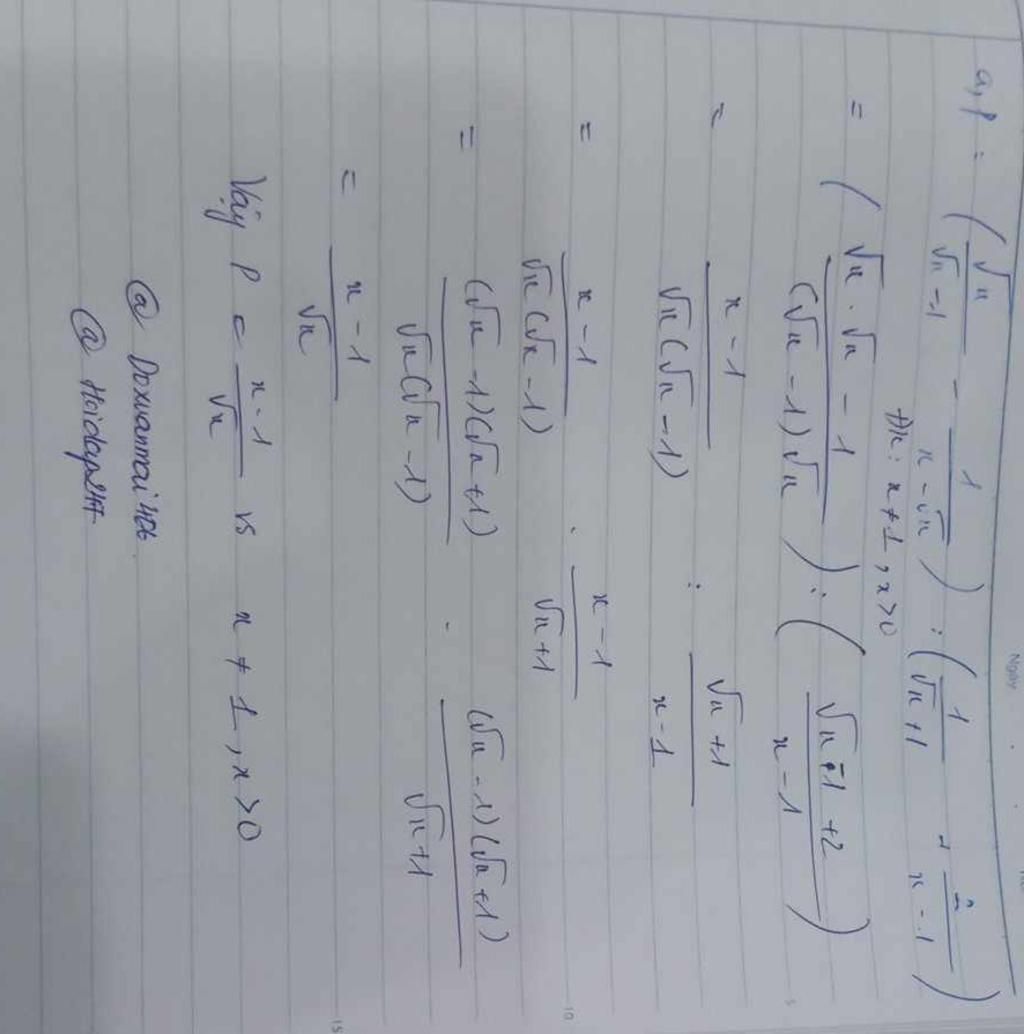 Ngày
a, P = (√x / (√x - 1) - 1 / (x - √x)) : (1 / (√x + 1) + 2 / (x - 1))
Đk: x ≠ 1, x > 0
= ((√x . √x - 1) / ((√x - 1)√x)) : ((√x - 1 + 2) / (x - 1))
5
= (x - 1) / (√x(√x - 1)) : (√x + 1) / (x - 1)
= (x - 1) / (√x(√x - 1)) . (x - 1) / (√x + 1)
10
= ((√x - 1)(√x + 1)) / (√x(√x - 1)) . ((√x - 1)(√x + 1)) / (√x + 1)
= (x - 1) / √x
15
Vậy P = (x - 1) / √x vs x ≠ 1, x > 0
@ Doxuanmai406
@ Hoidap247